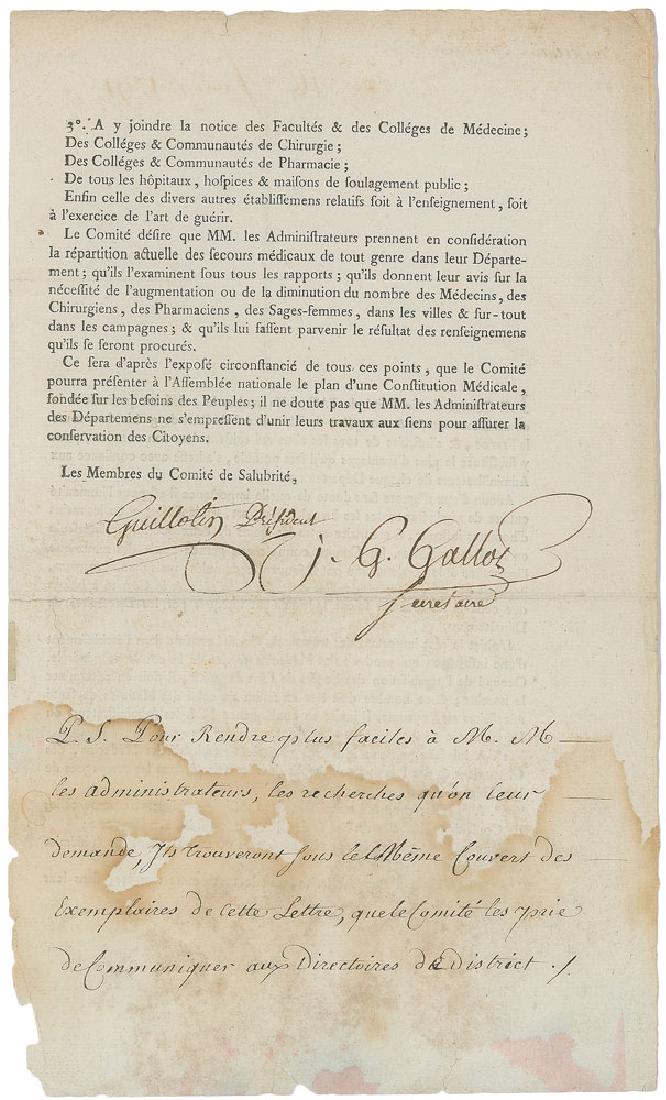 3°. A y joindre la notice des Facultés & des Colléges de Médecine;
Des Colléges & Communautés de Chirurgie;
Des Colléges & Communautés de Pharmacie;
De tous les hôpitaux, hoſpices & maiſons de ſoulagement public;
Enfin celle des divers autres établiſſemens relatifs ſoit à l'enſeignement, ſoit
à l'exercice de l'art de guérir.
Le Comité déſire que MM. les Adminiſtrateurs prennent en conſidération
la répartition actuelle des ſecours médicaux de tout genre dans leur Départe-
ment; qu'ils l'examinent ſous tous les rapports; qu'ils donnent leur avis ſur la
néceſſité de l'augmentation ou de la diminution du nombre des Médecins, des
Chirurgiens, des Pharmaciens, des Sages-femmes, dans les villes & ſur-tout
dans les campagnes; & qu'ils lui faſſent parvenir le réſultat des renſeignemens
qu'ils ſe ſeront procurés.
Ce ſera d'après l'expoſé circonſtancié de tous ces points, que le Comité
pourra préſenter à l'Aſſemblée nationale le plan d'une Conſtitution Médicale,
fondée ſur les beſoins des Peuples; il ne doute pas que MM. les Adminiſtrateurs
des Départemens ne s'empreſſent d'unir leurs travaux aux ſiens pour aſſurer la
conſervation des Citoyens.
Les Membres du Comité de Salubrité,
Guillotin Président
J. G. Gallot
Secretaire
P. S. Pour Rendre plus faciles à M. M
les administrateurs, les recherches qu'on leur
demande, Ils trouveront sous le Même Couvert des
Exemplaires de Cette Lettre, que le Comité les prie
de Communiquer aux Directoires de District ./.